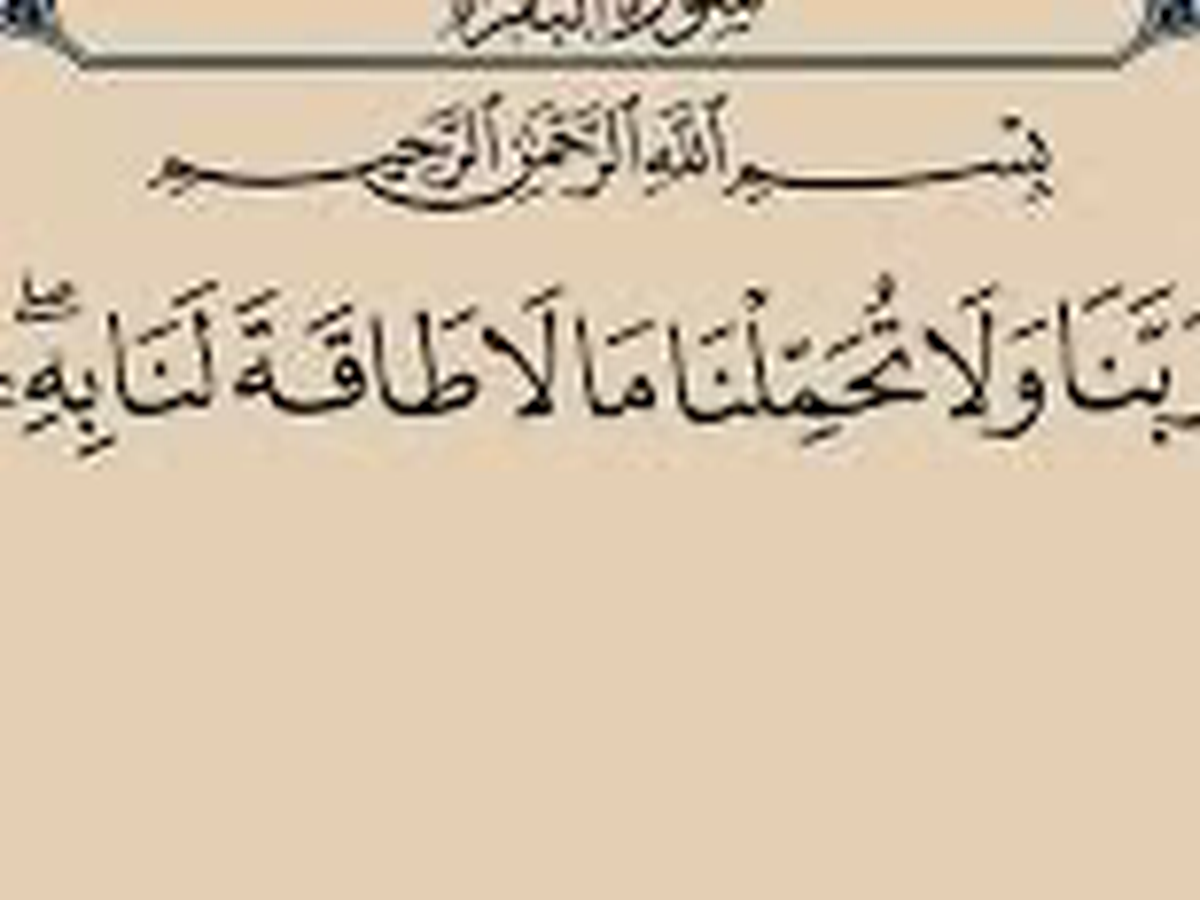 سورة البقرة
بِسْمِ ٱللَّهِ ٱلرَّحْمَٰنِ ٱلرَّحِيمِ
رَبَّنَا وَلَا تُحَمِّلْنَا مَا لَا طَاقَةَ لَنَا بِهِۦۖ